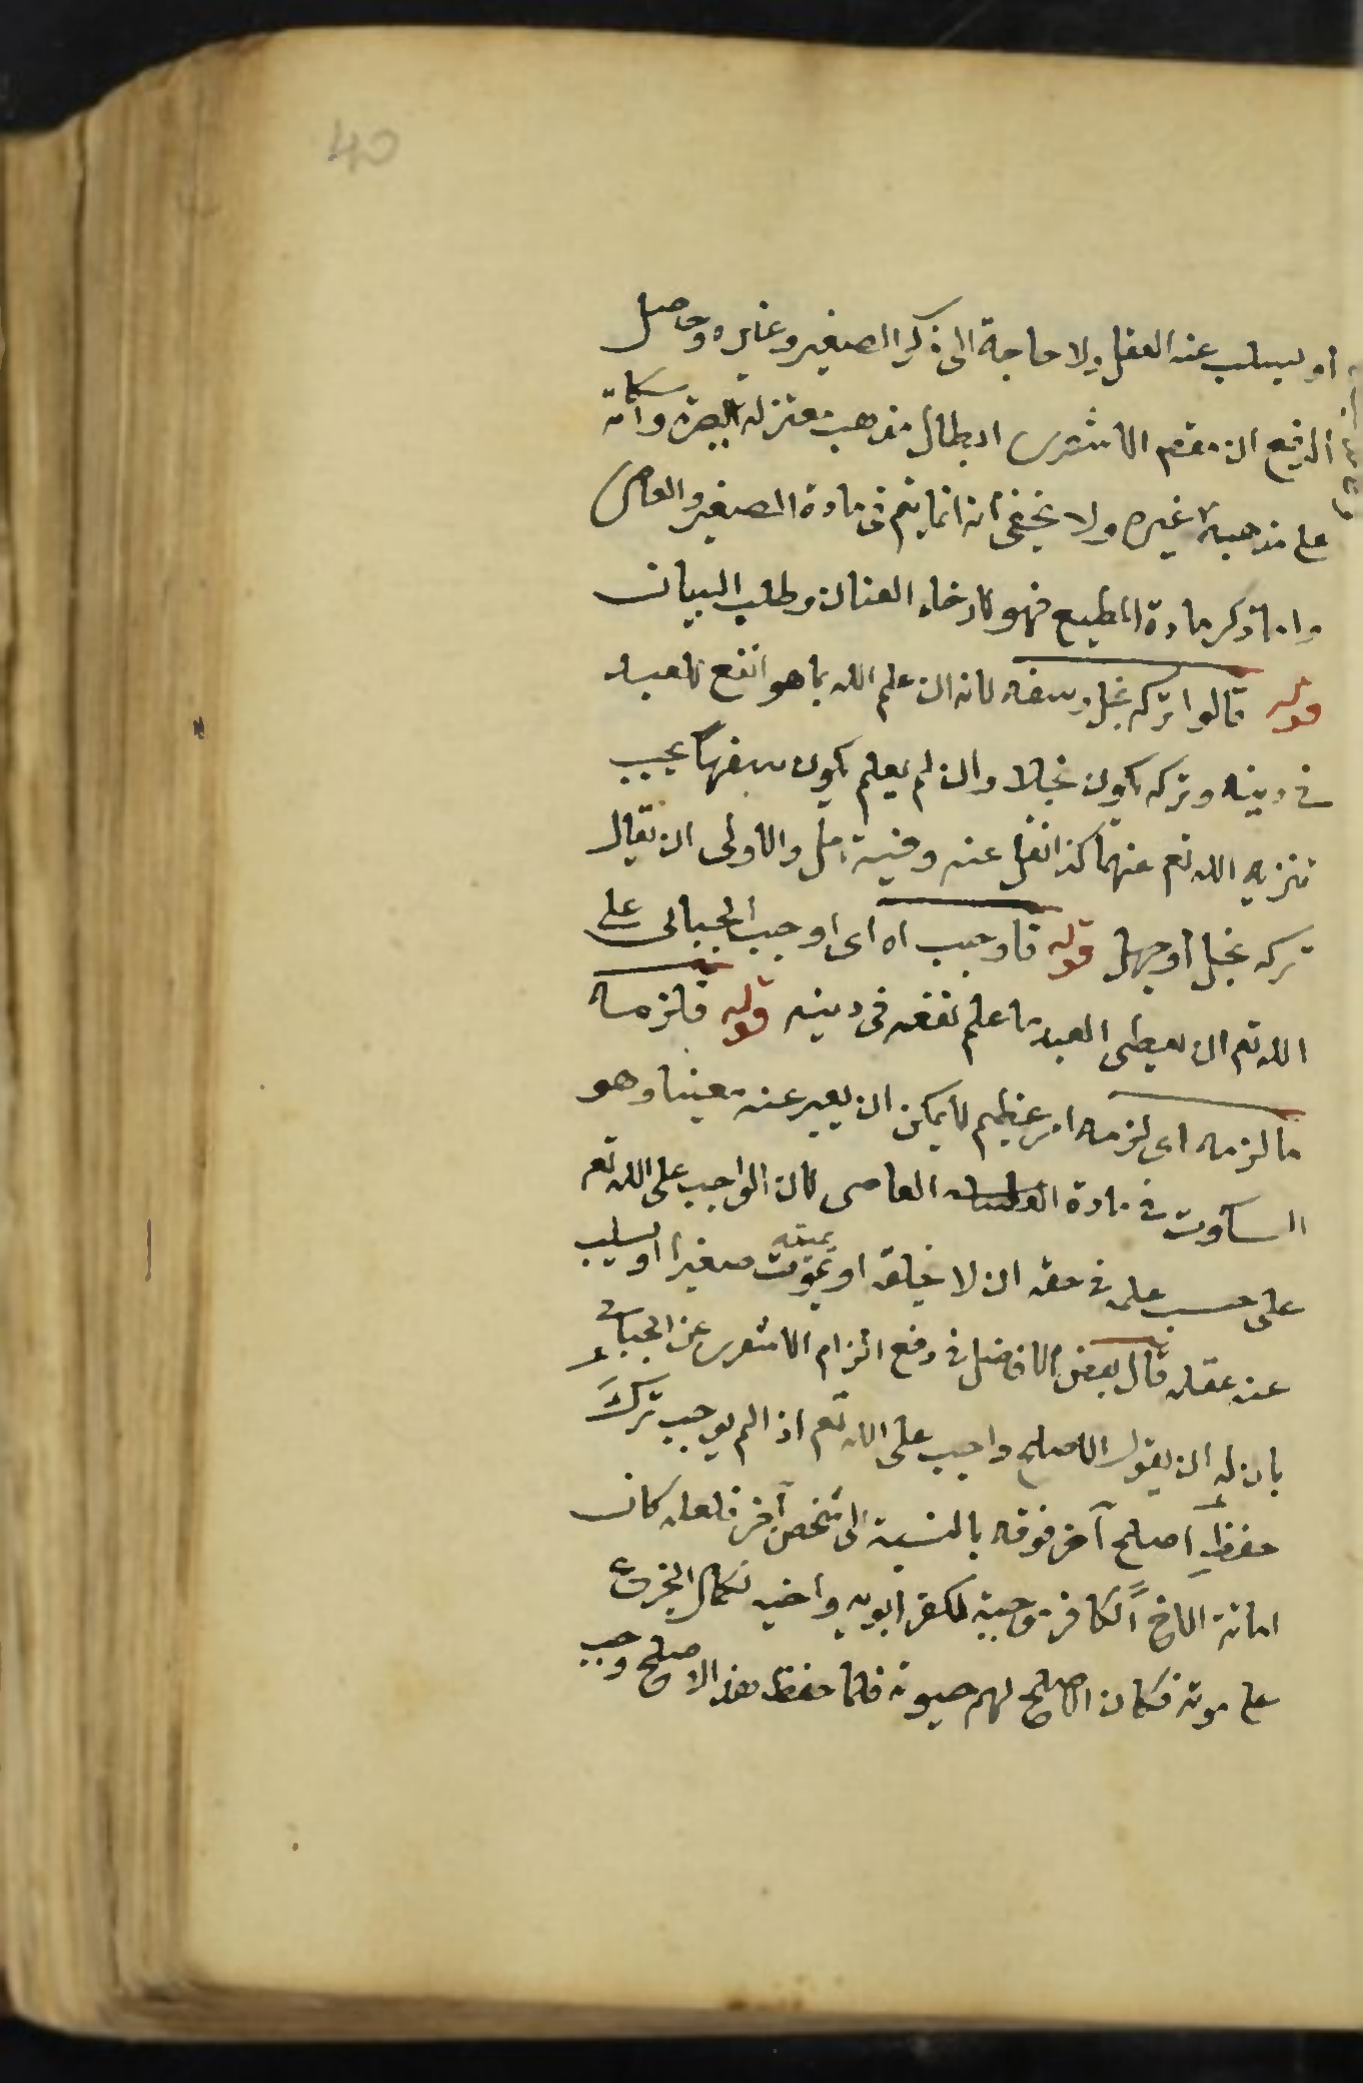 40
او يسلب عنه العقل ولا حاجة الى ذكر الصغير وغيره وحاصل
الدفع ان مقصم الاشعرى ابطال مذهب معتزلة البصرة واسكاته
على مذهبه لا غيره ولا يخفى انه انما يتم فى مادة الصغير والعاصى
واما ذكر مادة المطيع فهو لارخاء العنان وطلب البيان
قوله قالوا تركه بخل وسفه لانه ان علم الله بما هو انفع للعبد
فى دينه وتركه يكون بخلا وان لم يعلم يكون سفها يجب
تنزيه الله تع عنهما كذا نقل عنه وفيه تامل والاولى ان يقال
تركه بخل او جهل قوله فاوجب اه اى اوجب الجبائى على
الله تع ان يعطى العبد ما علم نفعه فى دينه قوله فلزمه
ما لزمه اى لزمه امر عظيم لا يمكن ان يعبر عنه معينا وهو
السكوت فى مادة العاصى لان الواجب على الله تع
على حسب علمه فى حقه ان لا يخلقه او يموت يميته صغيرا او يسلب
عنه عقله قال بعض الافاضل فى دفع الزام الاشعرى عن الجبائى
بان له ان يقول الاصلح واجب على الله تع اذا لم يوجب ترك
حفظ اصلح آخر فوقه بالنسبة الى شخص آخر فلعله كان
اماتة الاخ الكافر موجبة لكفر ابويه واخيه لكمال الجزع
على موته فكان الاصلح لهم حيوته فلما حفظ هذا الاصلح وجب